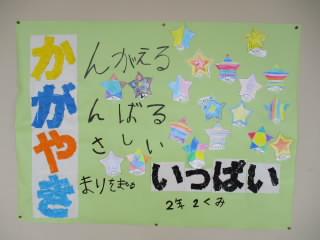 かんがえる
がんばる
やさしい
きまりをまもる
いっぱい
2年2くみ